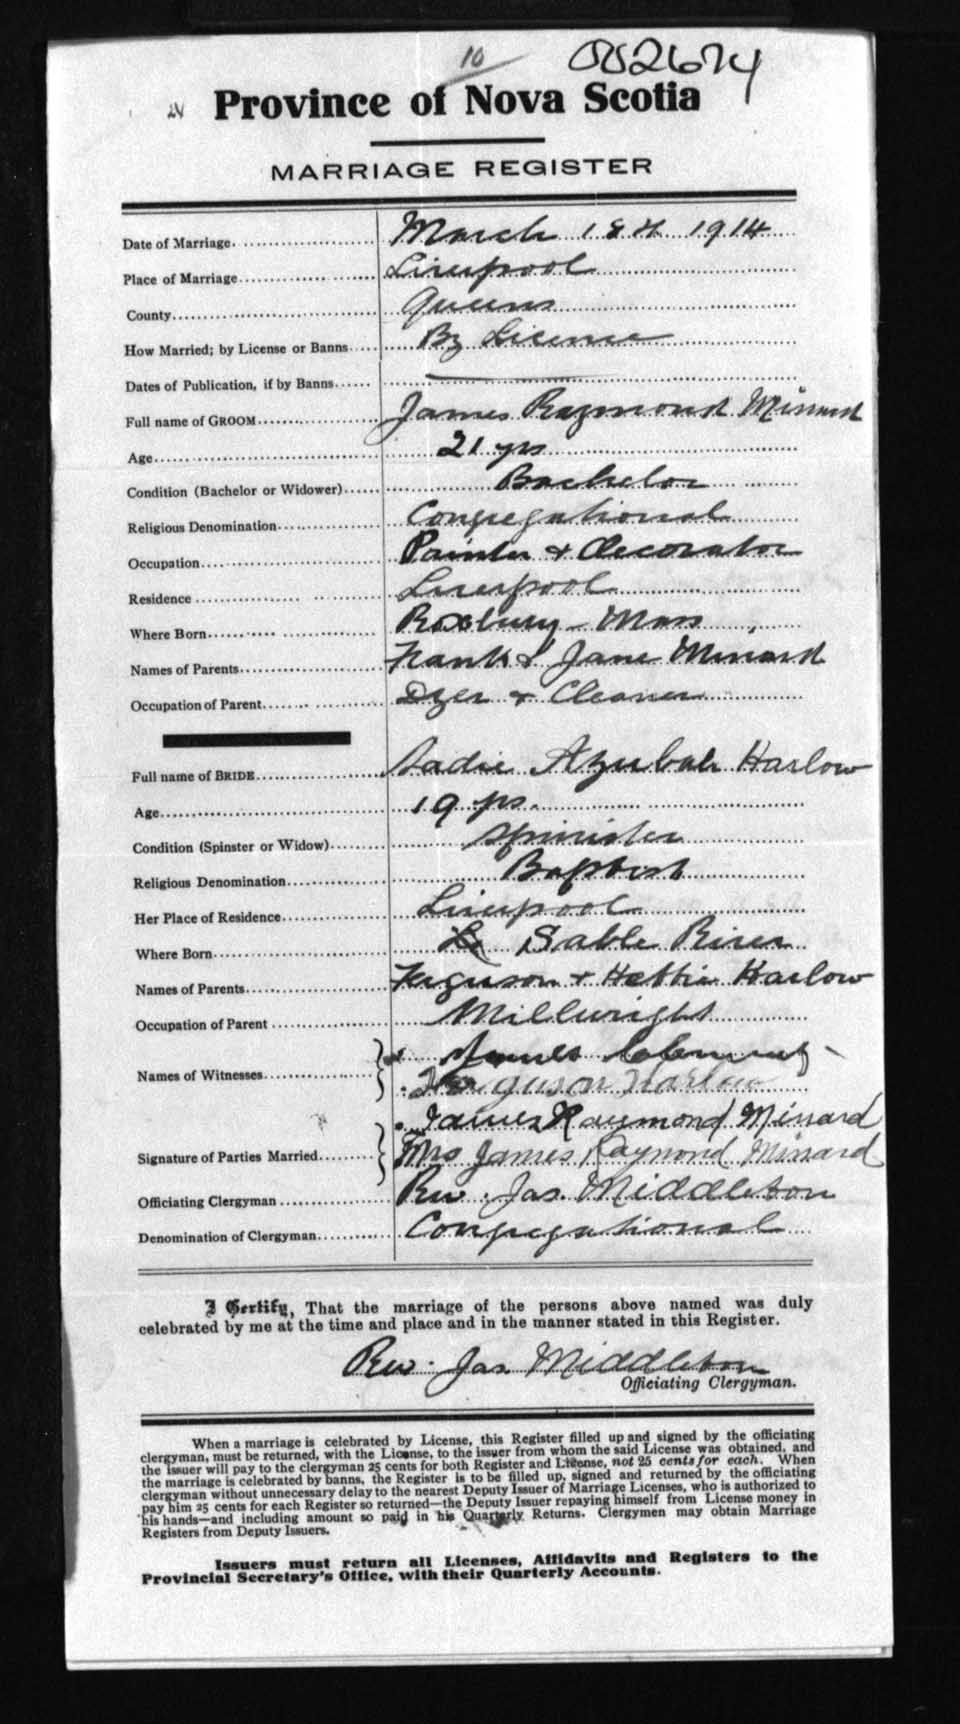 10
002674
Province of Nova Scotia
MARRIAGE REGISTER
Date of Marriage March 18th 1914
Place of Marriage Liverpool
County Queens
How Married; by License or Banns By License
Dates of Publication, if by Banns
Full name of GROOM James Raymond Minard
Age 21 yrs
Condition (Bachelor or Widower) Bachelor
Religious Denomination Congregational
Occupation Painter & decorator
Residence Liverpool
Where Born Roxbury - Mass
Names of Parents Frank & Jane Minard
Occupation of Parent Dyer & Cleaner
Full name of BRIDE Sadie Azubah Harlow
Age 19 yrs.
Condition (Spinster or Widow) Spinister
Religious Denomination Baptist
Her Place of Residence Liverpool
Where Born Sable River
Names of Parents Ferguson & Hettie Harlow
Occupation of Parent Millwright
Names of Witnesses James
Ferguson Harlow
James Raymond Minard
Signature of Parties Married Mrs James Raymond Minard
Officiating Clergyman Rev. Jas. Middleton
Denomination of Clergyman Congregational
I Certify, That the marriage of the persons above named was duly
celebrated by me at the time and place and in the manner stated in this Register.
Rev. Jas. Middleton
Officiating Clergyman.
When a marriage is celebrated by License, this Register filled up and signed by the officiating
clergyman, must be returned, with the License, to the issuer from whom the said License was obtained, and
the issuer will pay to the clergyman 25 cents for both Register and License, not 25 cents for each. When
the marriage is celebrated by banns, the Register is to be filled up, signed and returned by the officiating
clergyman without unnecessary delay to the nearest Deputy Issuer of Marriage Licenses, who is authorized to
pay him 25 cents for each Register so returned—the Deputy Issuer repaying himself from License money in
his hands—and including amount so paid in his Quarterly Returns. Clergymen may obtain Marriage
Registers from Deputy Issuers.
Issuers must return all Licenses, Affidavits and Registers to the
Provincial Secretary's Office, with their Quarterly Accounts.